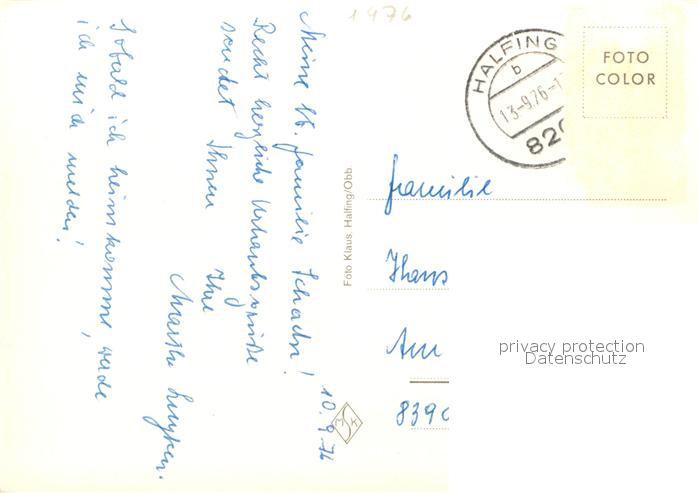 1976
Meine lb. Familie Schader!
Recht herzliche Urlaubsgrüße
sendet Ihnen Ihre
Martha
Sobald ich heimkomme, werde
ich mich melden!
10.9.76
Foto Klaus, Halfing/Obb.
MSK
HALFING
b
13-9.76-1
820
FOTO
COLOR
Familie
Hans
Am
8390
privacy protection
Datenschutz